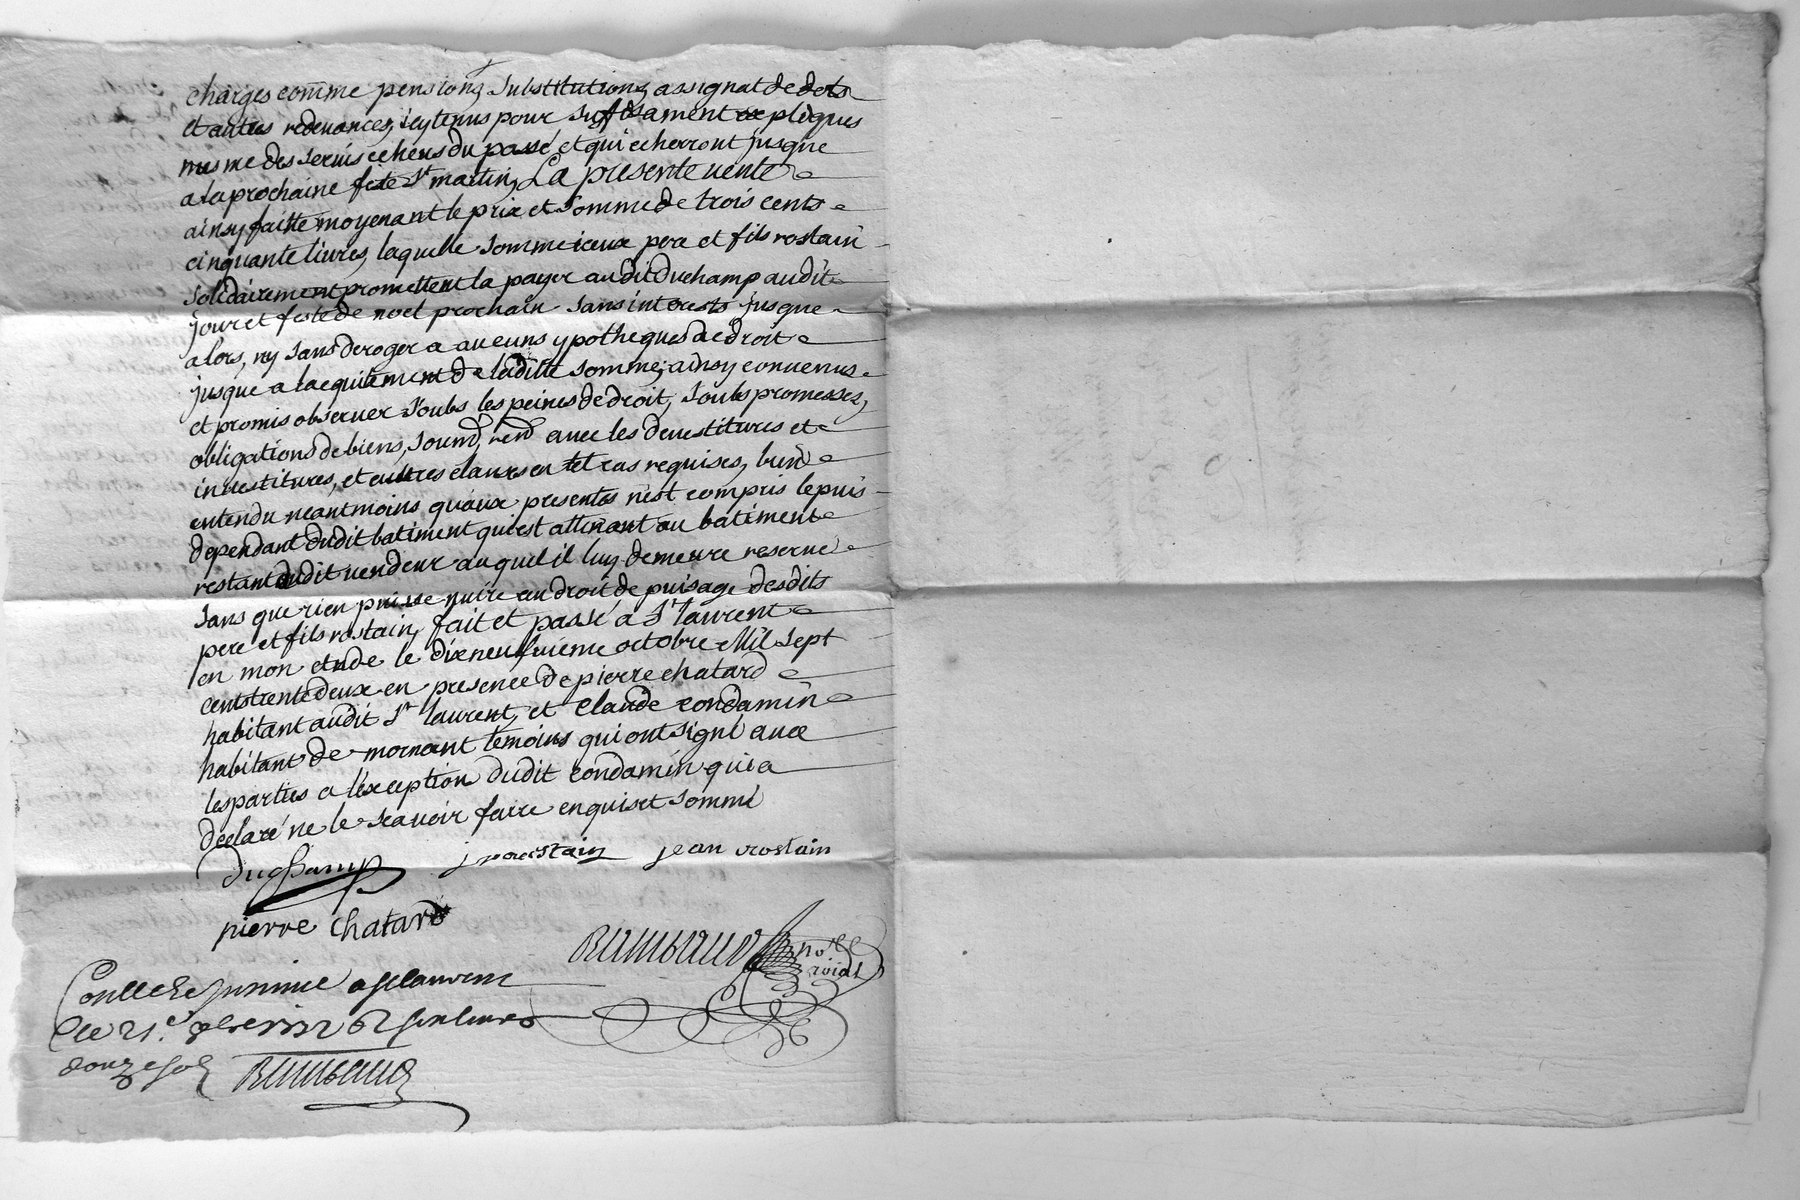 charges comme pensions, substitutions, assignat de dots
et autres redevances, icy tenus pour suffisament expliqués
mesme des servis echeus du passé et qui echerront jusque
a la prochaine feste St martin, La presente vente
ainsy faitte moyenant le prix et somme de trois cents
cinquante livres, laquelle somme iceux pere et fils rostain
solidairement promettent la payer audit Duchamp audit
jour et feste de noel prochain sans interests jusque
alors, ny sans deroger a aucuns ypotheques de droit
jusque a lacquitement de laditte somme; ainsy convenus
et promis observer soubs les peines de droit, soubs promesses,
obligations de biens, soumd, rend avec les devestitures et
investitures, et aultres clauses en tel cas requises, bien
entendu neantmoins quaux presentes nest compris le puis
dependant dudit batiment qui est attenant au batiment
restant dudit vendeur auquel il luy demeure reservé
sans que rien puisse nuire au droit de puisage desdits
pere et fils rostain, fait et passé a St laurent
en mon etude le dix neufvieme octobre Mil sept
cents trente deux en presence de pierre chatard
habitant audit St laurent, et claude condamin
habitant de mornant temoins qui ont signé avec
les parties a lexception dudit condamin qui a
declaré ne le scavoir faire enquis et sommé
Duchamp j rostain jean rostain
pierre chatard
Rambaud no.re roial
Conllé
le 21.e
douze sols Rambaud